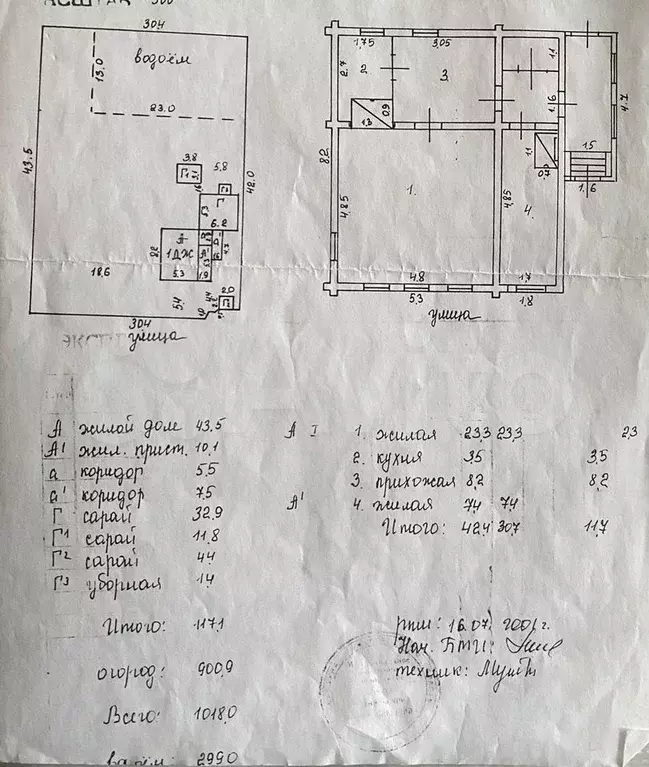 30.4
водоём
13.0
23.0
43.5
42.0
3.8
5.8
5.3
6.2
1ДЖ
8.2
5.3
1.9
18.6
5.4
2.0
30.4
улица
1,75
3,05
2.7
2
3.
1.3
0.9
1.1
1.16
4.7
1.5
1.6
8.2
4.85
1.
4.8
5.3
1.1
0.7
4.85
4.
1.7
1.8
улица
А жилой дом 43,5
А¹ жил. прист. 10,1
а коридор 5,5
а¹ коридор 7,5
Г сарай 32,9
Г¹ сарай 11,8
Г² сарай 4,4
Г³ уборная 1,4
Итого: 117,1
огород: 900,9
Всего: 1018,0
водоём: 299,0
А I 1. жилая 23,3 23,3 23
2. кухня 3,5 3,5
3. прихожая 8,2 8,2
А¹ 4. жилая 7,4 7,4
Итого: 42,4 30,7 11,7
16.07. 2001г.
Нач. БТИ:
техник: